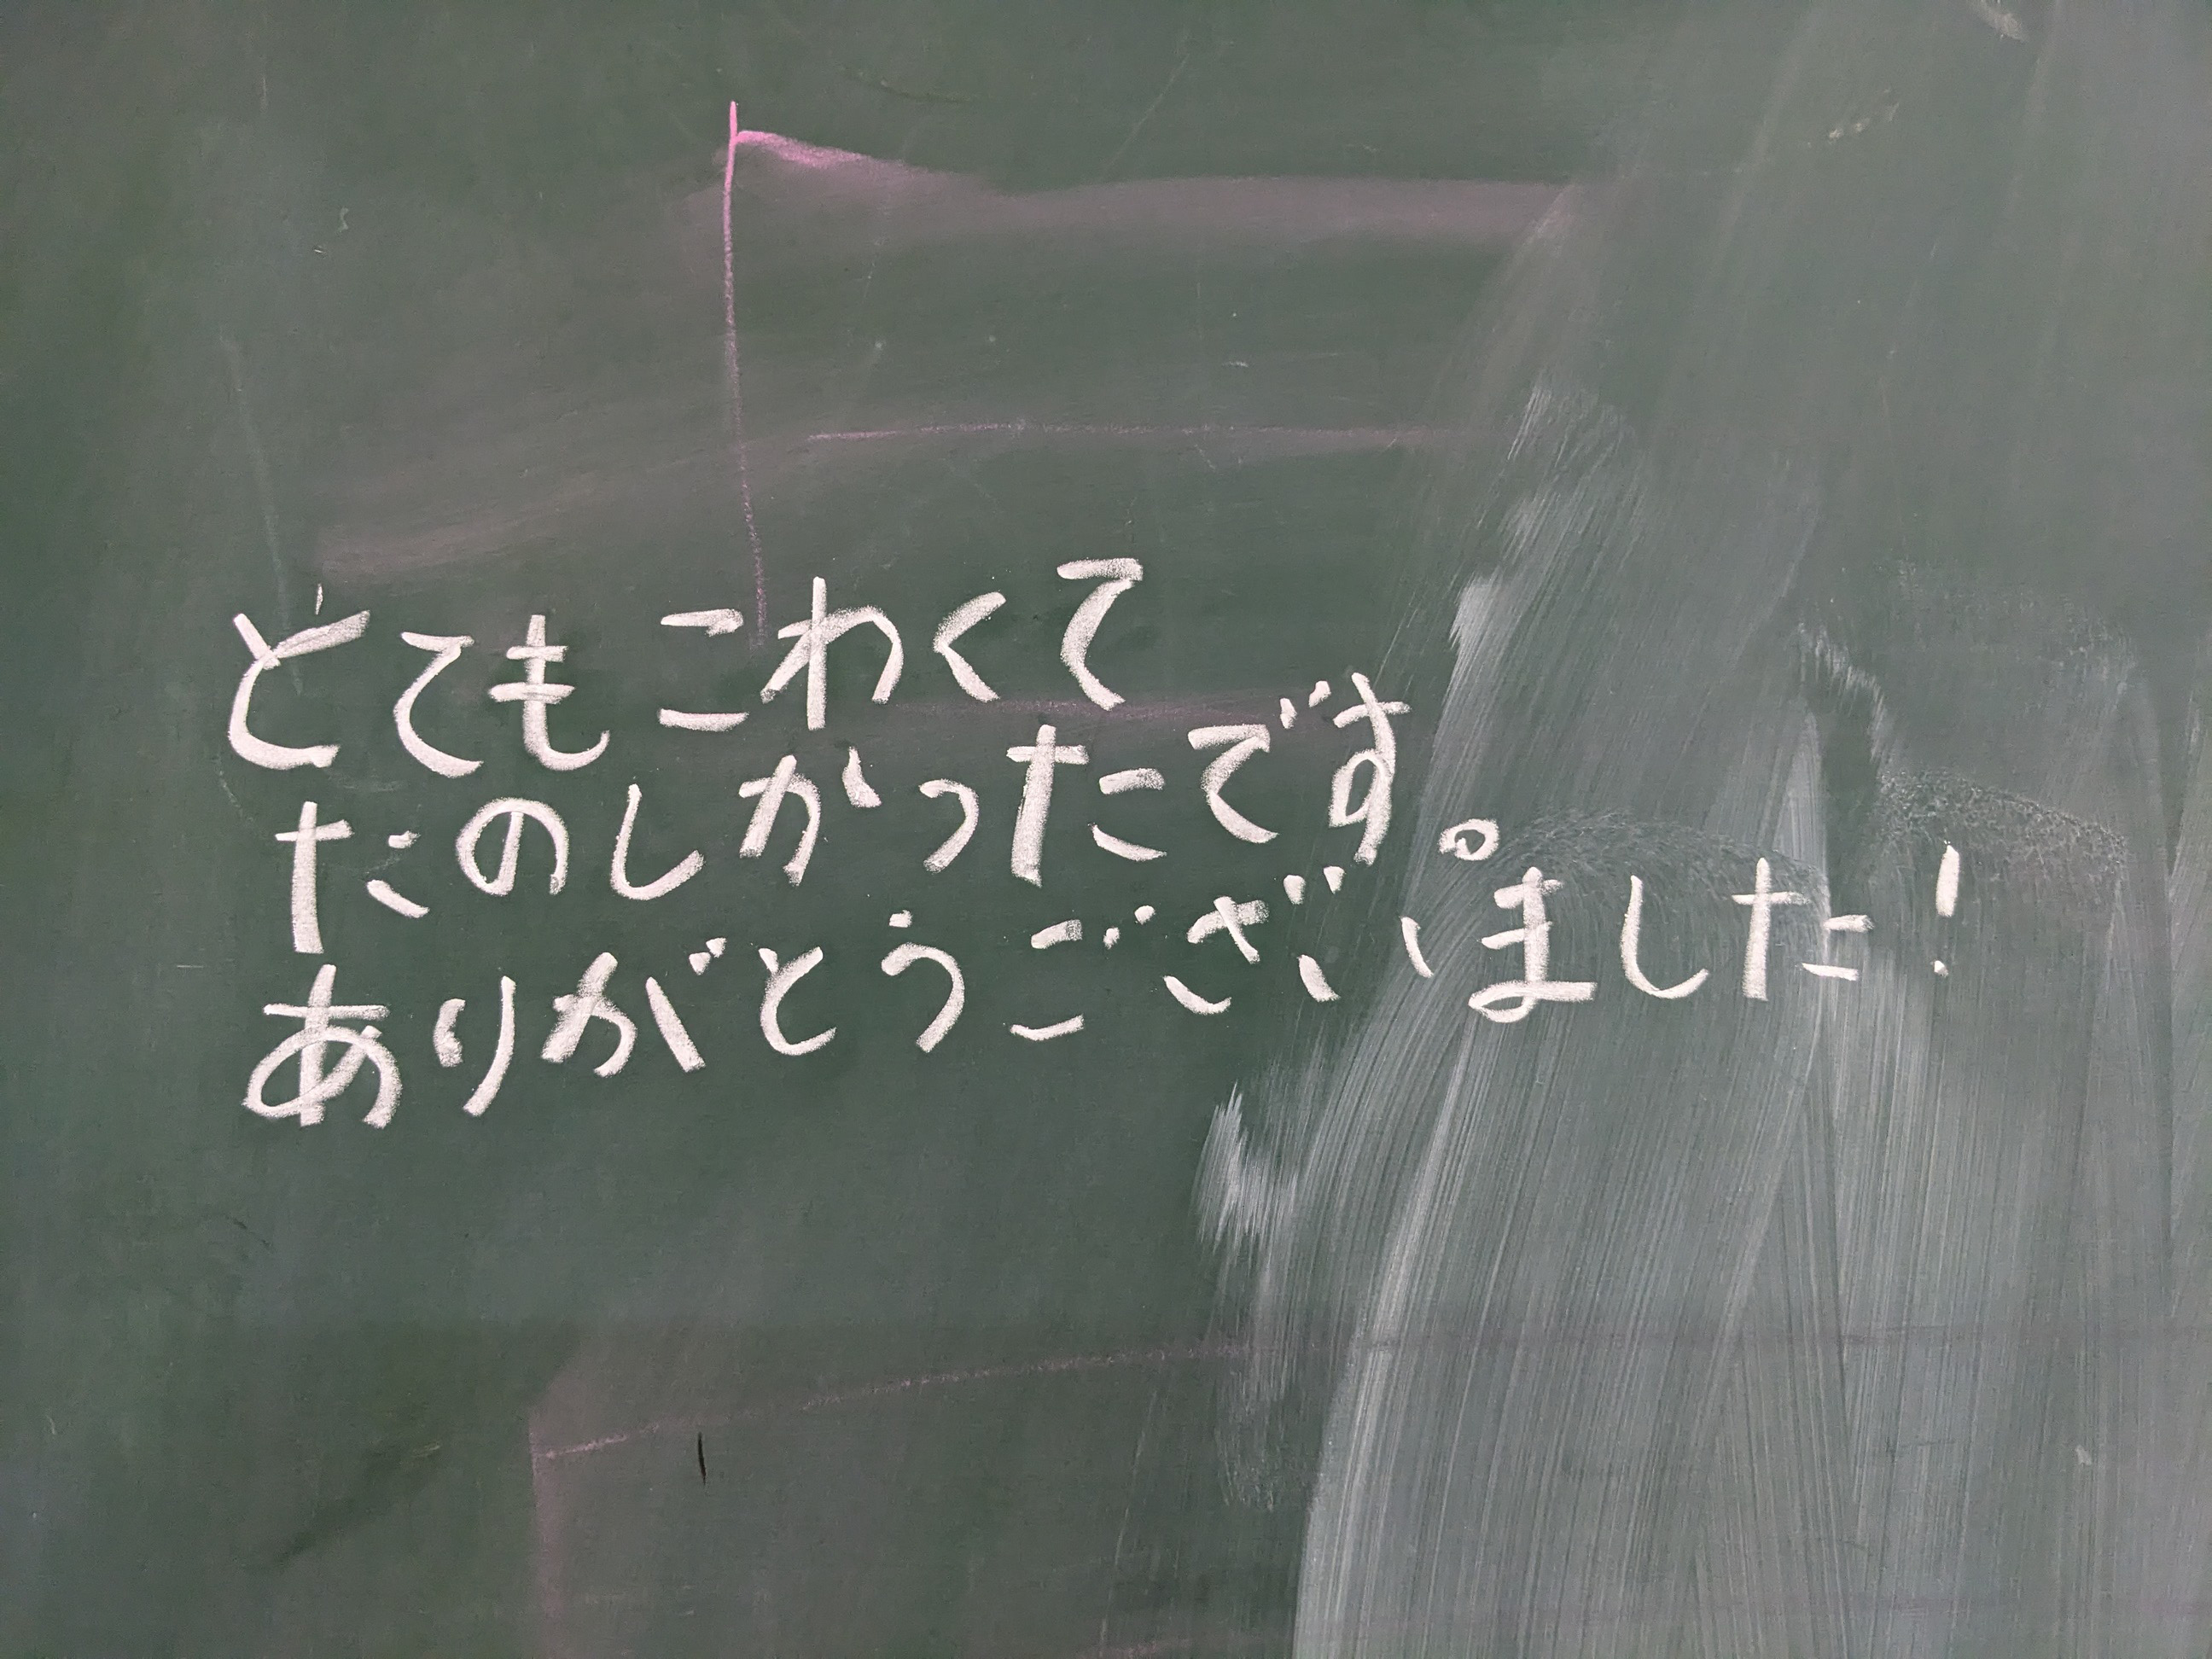 とてもこわくて
たのしかったです。
ありがとうございました!